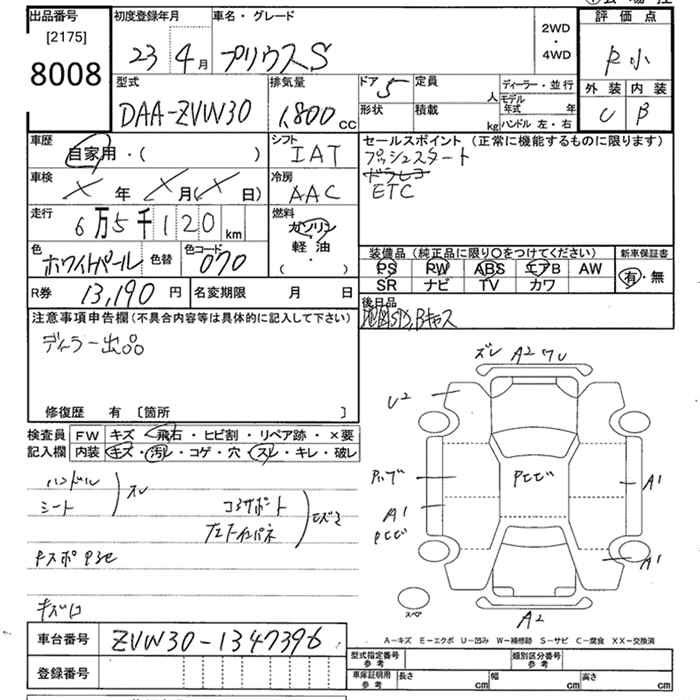 出品番号 初度登録年月 車名・グレード
[2175]
8008
23 4月 プリウスS
2WD
・
4WD
評価点
外装 内装
U B
型式 排気量
DAA-ZVW30 1,800 CC
ドア 5 定員 人 ディーラー・並行
形状 積載 kg モデル年式 年
ハンドル 左・右
車歴
自家用・( )
シフト
IAT
車検
× 年 × 月(× 日)
冷房
AAC
走行
6万5千120 km
燃料
ガソリン
軽油
・( )
色 ホワイトパール 色替 色コード 070
R券 13,190 円 名変期限 月 日
セールスポイント (正常に機能するものに限ります)
プッシュスタート
ドラレコ
ETC
装備品(純正品に限り○をつけてください) 新車保証書
PS PW ABS エアB AW
SR ナビ TV カワ
有・無
後日品
注意事項申告欄(不具合内容等は具体的に記入して下さい)
ディーラー出品
修復歴 有 [箇所 ]
検査員 FW キズ・飛石・ヒビ割・リペア跡・×要
記入欄 内装 キズ・汚レ・コゲ・穴・スレ・キレ・破レ
ハンドル
シート
スレ
コアサポート
キズ
ズレ A2 ワレ
U2
A1
A1
A1
A2
スペア
車台番号 ZVW30-1347396
登録番号
A-キズ E-エクボ U-凹み W-補修跡 S-サビ C-腐食 XX-交換済
型式指定番号 参考 類別区分番号 参考
車庫証明用 参考 長さ cm 幅 cm 高さ cm